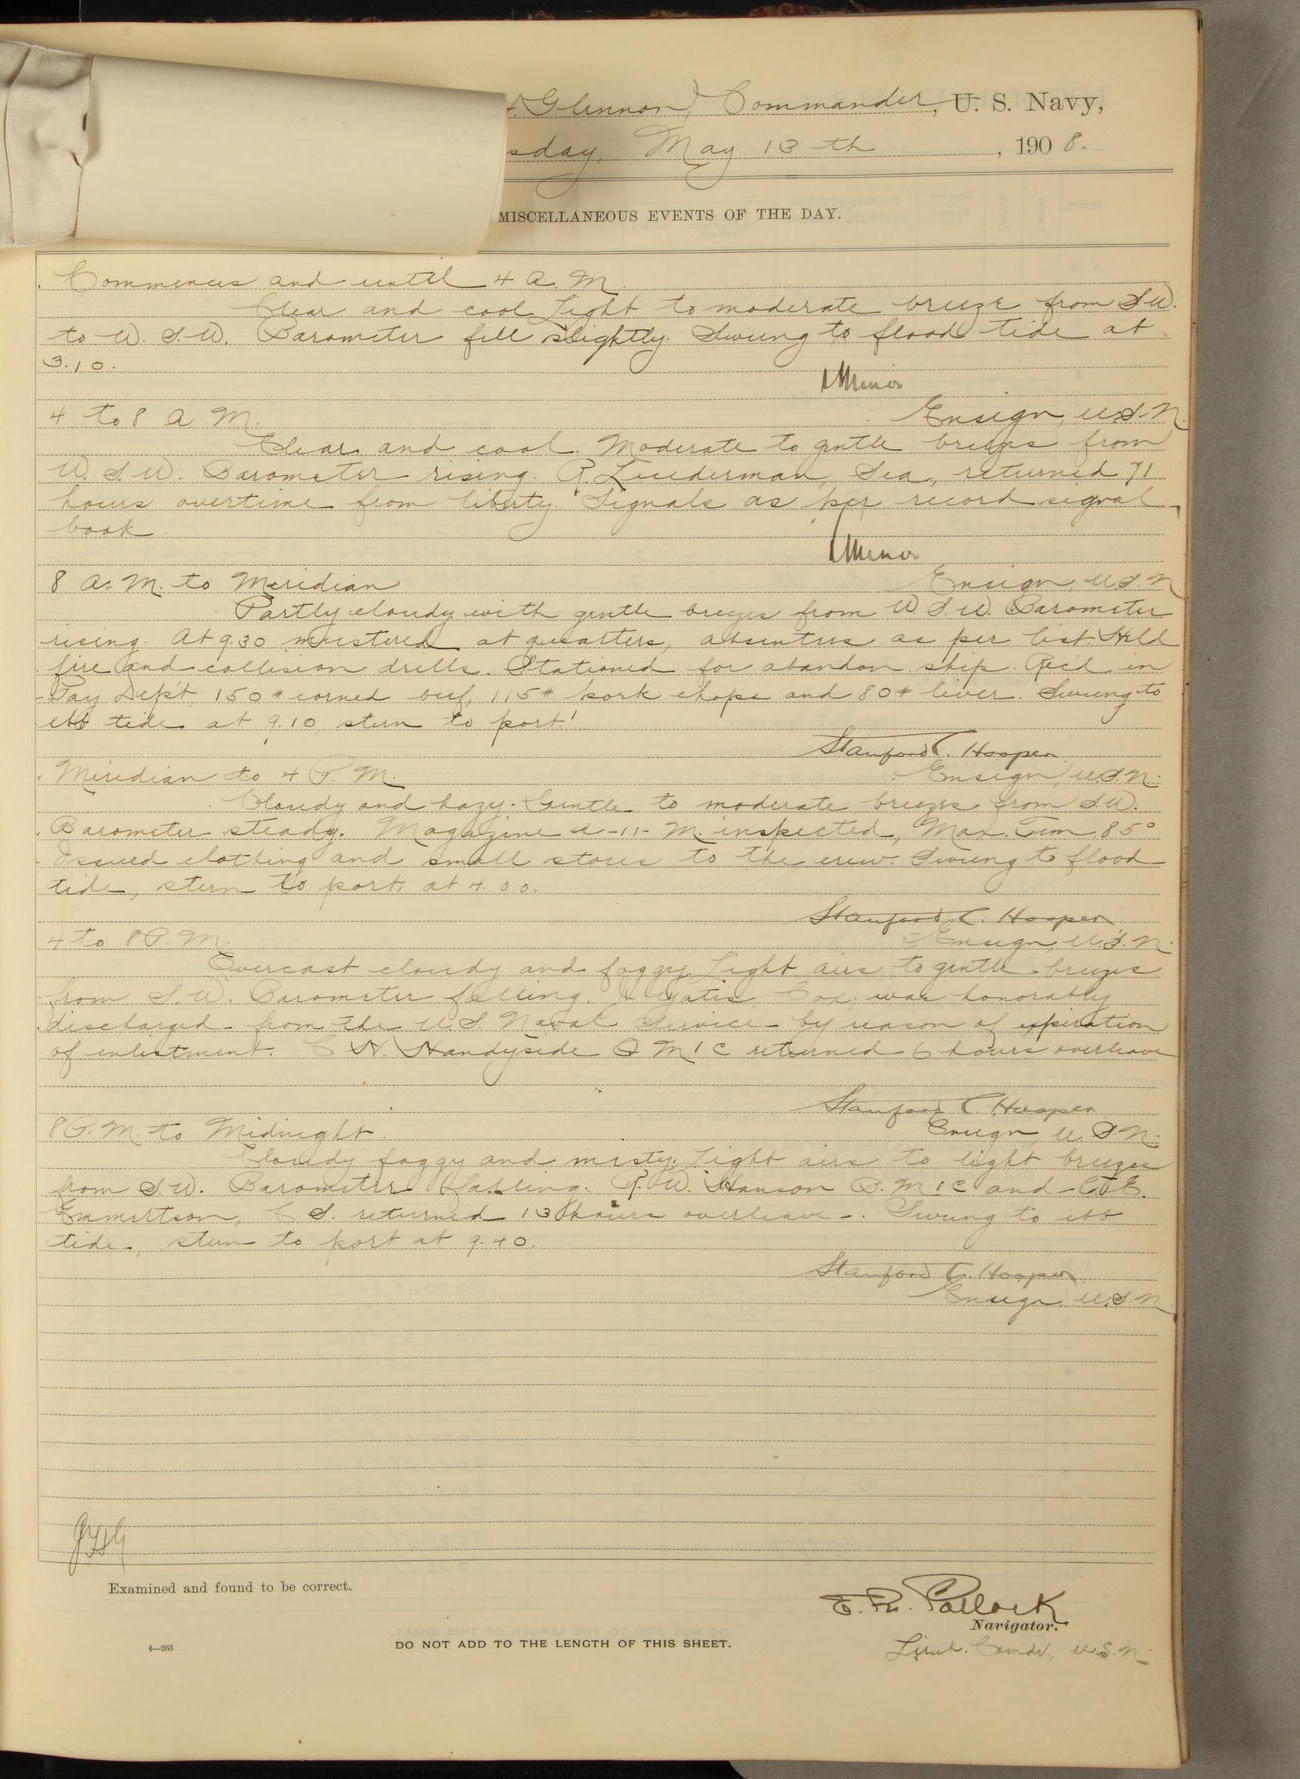 Glennon, Commander, U. S. Navy,
sday, May 13th, 1908.
MISCELLANEOUS EVENTS OF THE DAY.
Commences and until 4 A. M.
Clear and cool Light to moderate breeze from S.W.
to W. S. W. Barometer fell slightly. Swung to flood tide at
3.10.
Minor
4 to 8 A M.
Ensign, U.S.N.
Clear and cool. Moderate to gentle breezes from
W. S. W. Barometer rising. R. Luederman, Sea, returned 71
hours overtime from liberty. Signals as per record signal
book.
Minor
8 A. M. to Meridian
Ensign, U.S.N.
Partly cloudy with gentle breezes from W S. W. Barometer
rising. At 9.30 mustered at quarters, absentees as per list. Held
fire and collision drills. Stationed for abandon ship. Rec'd in
Pay Dep't, 150# corned beef, 115# pork chops and 80# liver. Swung to
ebb tide at 9.10, stern to port.
Stanford C. Hooper
Meridian to 4 P. M.
Ensign, U.S.N.
Cloudy and hazy. Gentle to moderate breezes from S.W.
Barometer steady. Magazine A-11-M inspected, Max. Tem. 85°
Issued clothing and small stores to the crew. Swung to flood
tide, stern to port, at 4.00.
Stanford C. Hooper
4 to 8 P. M.
Ensign, U.S.N.
Overcast cloudy and foggy. Light airs to gentle breezes
from S. W. Barometer falling. Yates Cox. was honorably
discharged from the U.S. Naval Service by reason of expiration
of enlistment. C. N. Handyside Q M 1 C returned 6 hours overleave
Stanford C. Hooper
8 P. M. to Midnight.
Ensign, U. S. N.
Cloudy foggy and misty. Light airs to light breezes
from S. W. Barometer falling. R. W. Hanson B. M 1 C and C. E.
Emmertson, C S. returned 13 hours overleave. Swung to ebb
tide, stern to port at 9.40.
Stanford C. Hooper
Ensign, U.S.N.
JHG
Examined and found to be correct.
Pollock
Navigator.
Lieut. Comdr., U.S.N.
4—265
DO NOT ADD TO THE LENGTH OF THIS SHEET.